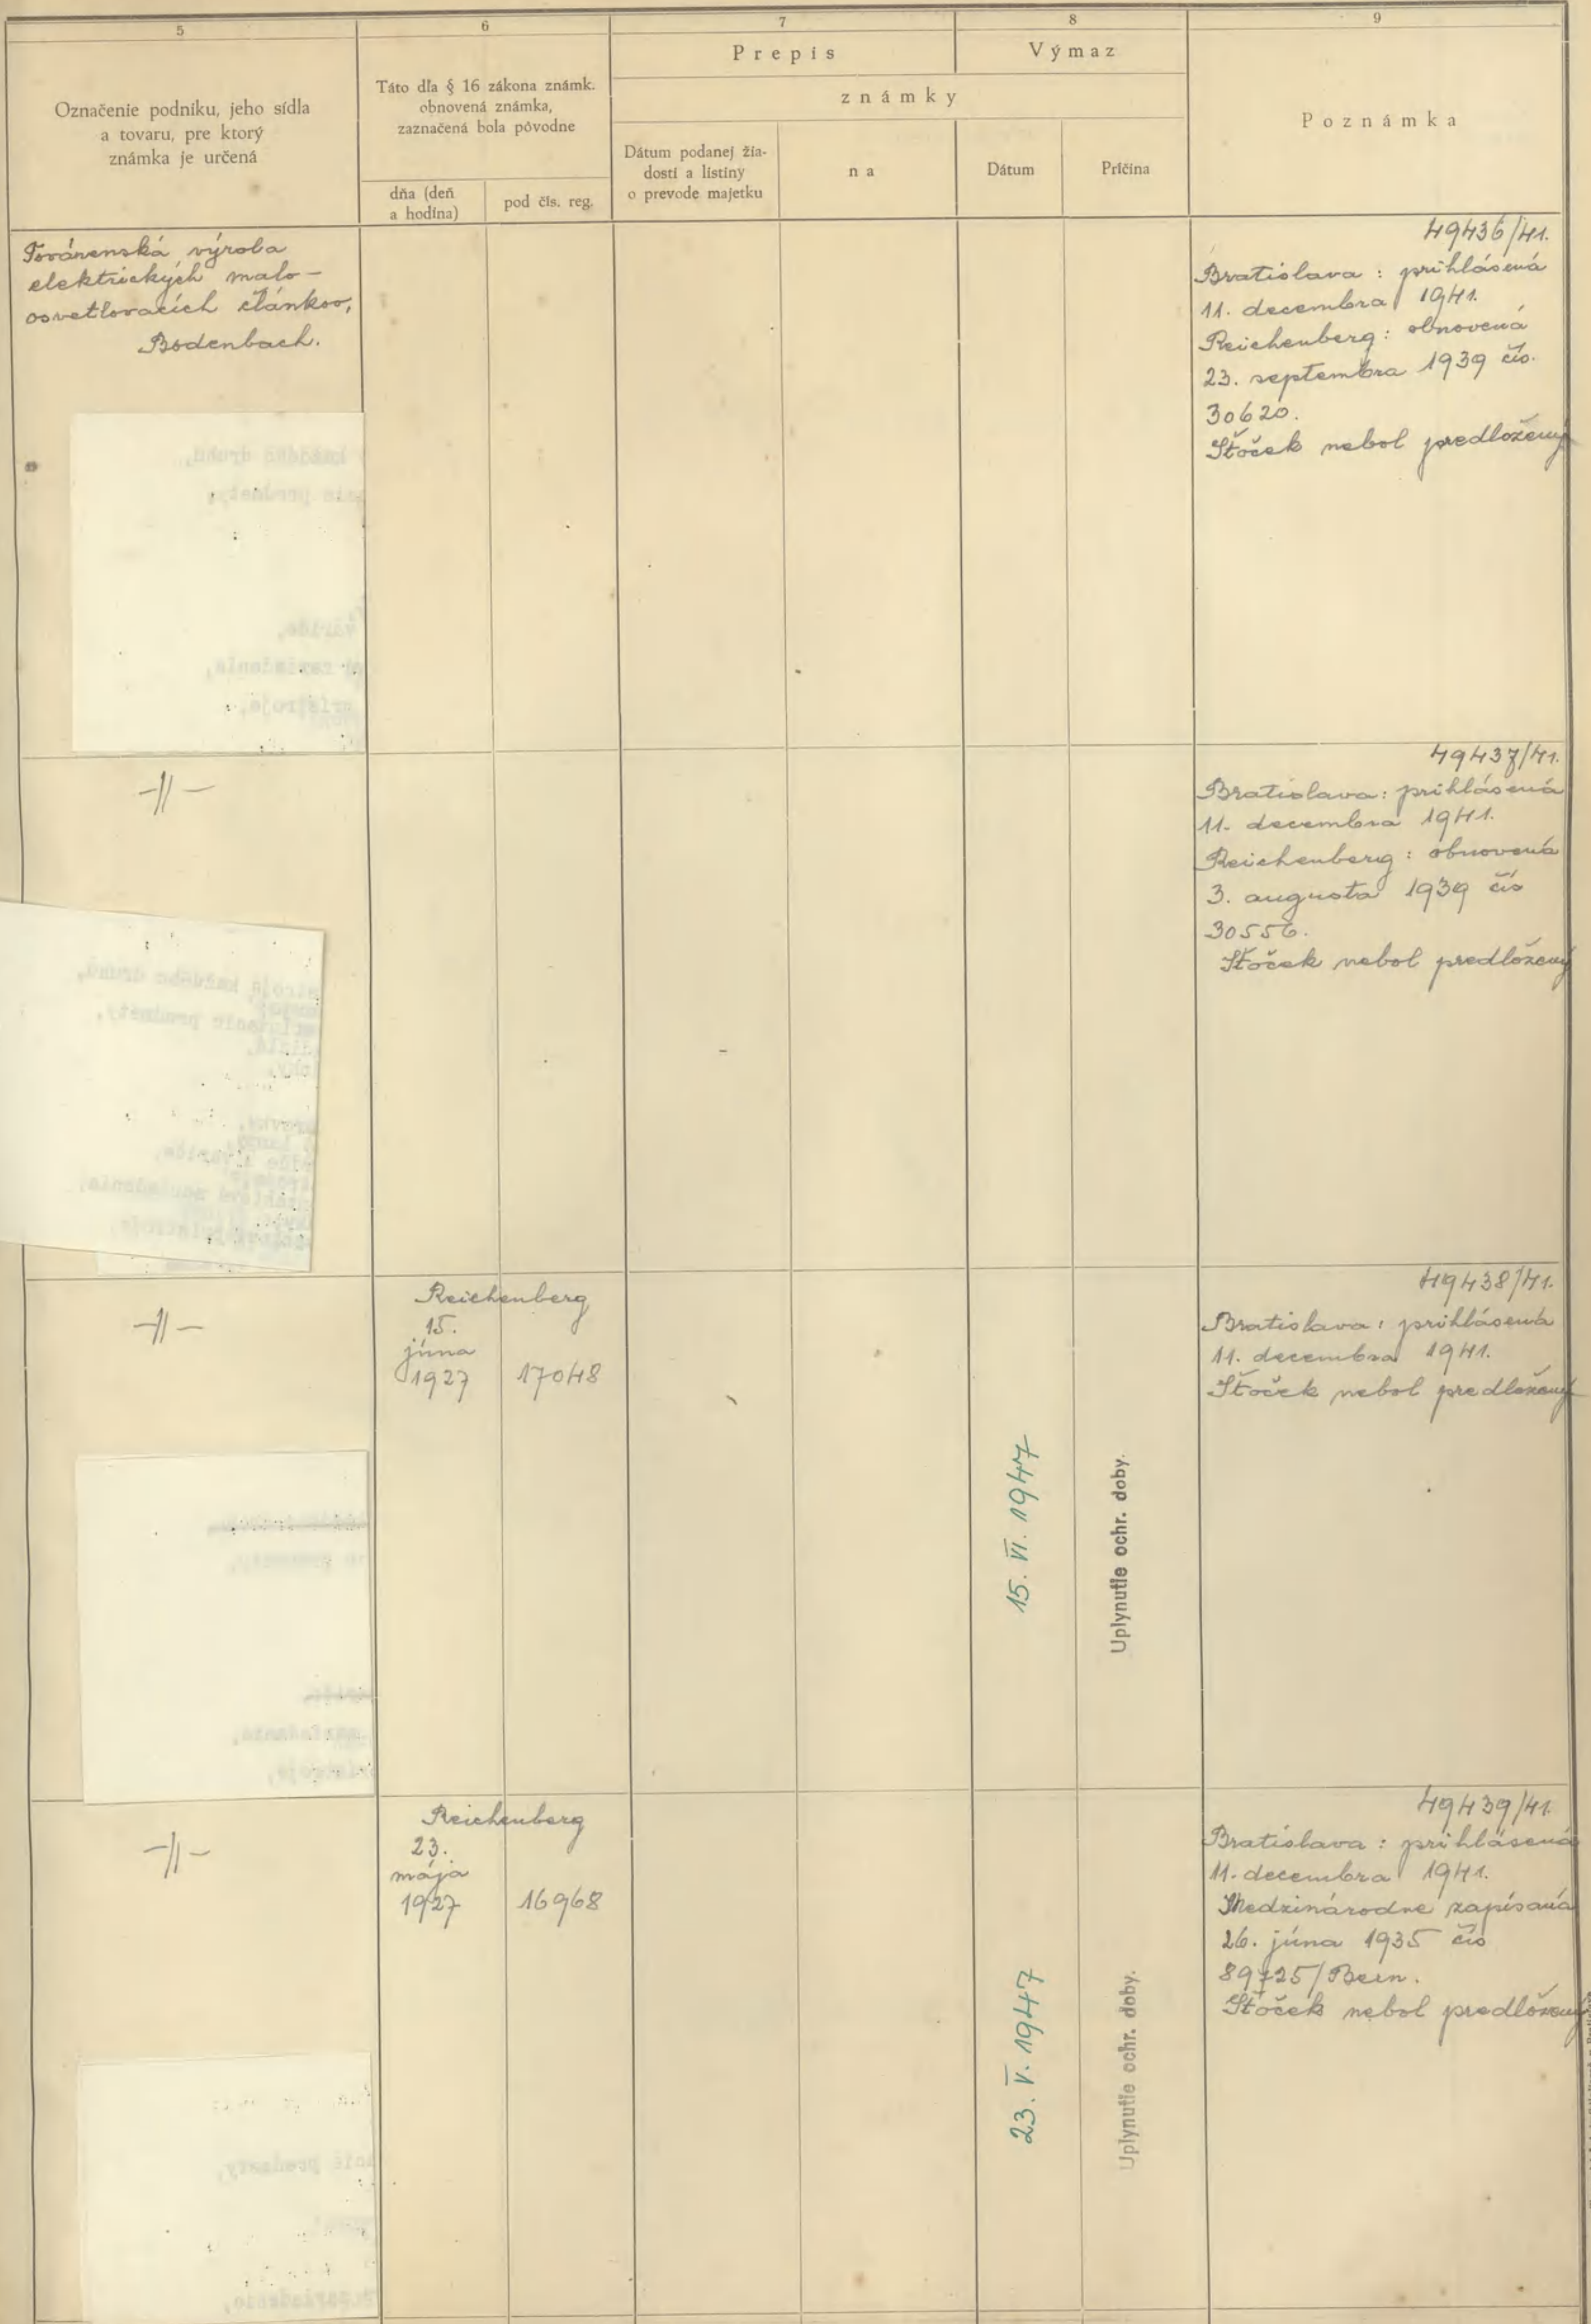 5
6
7
8
9
Označenie podniku, jeho sídla
a tovaru, pre ktorý
známka je určená
Táto dľa § 16 zákona známk.
obnovená známka,
zaznačená bola pôvodne
dňa (deň
a hodina)
pod čís. reg.
Prepis
Výmaz
známky
Dátum podanej žia-
dosti a listiny
o prevode majetku
na
Dátum
Príčina
Poznámka
Továrenská výroba
elektrických malo-
osvetlovacích článkov,
Bodenbach.
49436/41.
Bratislava: prihlásená
11. decembra 1941.
Reichenberg: obnovená
23. septembra 1939 čís.
30620.
Štoček nebol predložený
-||-
49437/41.
Bratislava: prihlásená
11. decembra 1941.
Reichenberg: obnovená
3. augusta 1939 čís
30556.
Štoček nebol predložený
-||-
Reichenberg
15.
júna
1927
17048
15. VI. 1947
Uplynutie ochr. doby.
49438/41.
Bratislava: prihlásená
11. decembra 1941.
Štoček nebol predložený
-||-
Reichenberg
23.
mája
1927
16968
23. V. 1947
Uplynutie ochr. doby.
49439/41.
Bratislava: prihlásená
11. decembra 1941.
Medzinárodne zapísaná
26. júna 1935 čís
89725/Bern.
Štoček nebol predložený